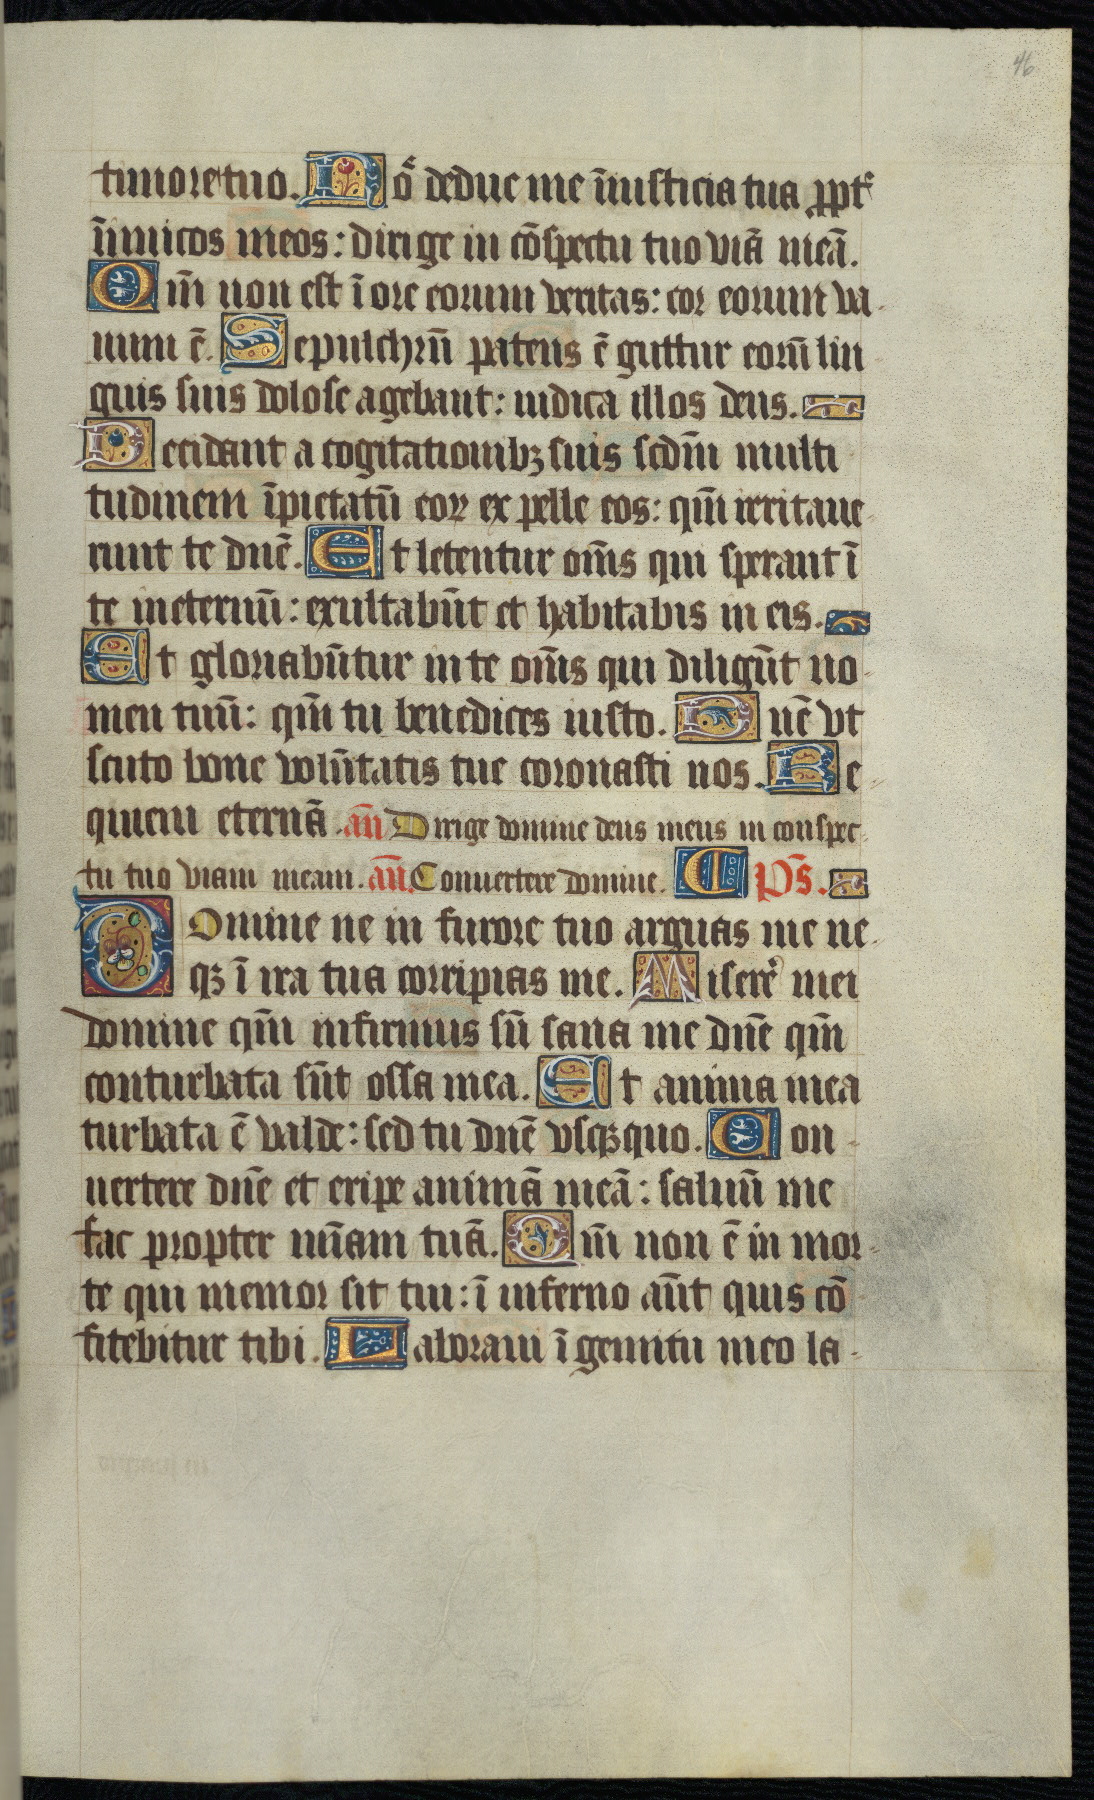 46
timore tuo. Dō deduc me ī iusticia tua ꝓpt᷑
īimicos meos: dirige in cōspectu tuo viā meā.
Qm̄ non est ī ore eorum veritas: cor eorum va-
num ē. Sepulchrū patens ē guttur eorū lin
guis suis dolose agebant: iudica illos deus.
Decidant a cogitationibꝫ suis scdm̄ multi
tudinem īpietatū eoꝝ expelle eos: qm̄ irritaue-
runt te dn̄e. Et letentur om̄s qui sperant ī
te in eternū: exultabūt et habitabis in eis.
Et gloriabūtur in te om̄s qui diligūt no-
men tuū: qm̄ tu benedices iusto. Dn̄e vt
scuto bone volūtatis tue coronasti nos. Re-
quiem eternā. an̄ Dirige domine deus meus in conspec-
tu tuo viam meam. an̄. Conuertere domine. C Ps̄.
Domine ne in furore tuo arguas me ne-
qꝫ ī ira tua corripias me. Miserē mei
domine qm̄ infirmus sū sana me dn̄e qm̄
conturbata sūt ossa mea. Et anima mea
turbata ē valde: sed tu dn̄e vsqꝫquo. Con-
uertere dn̄e et eripe animā meā: saluū me
fac propter mīam tuā. Qm̄ non ē in mor-
te qui memor sit tui: ī inferno aūt quis cō
fitebitur tibi. Laboraui ī gemitu meo la-